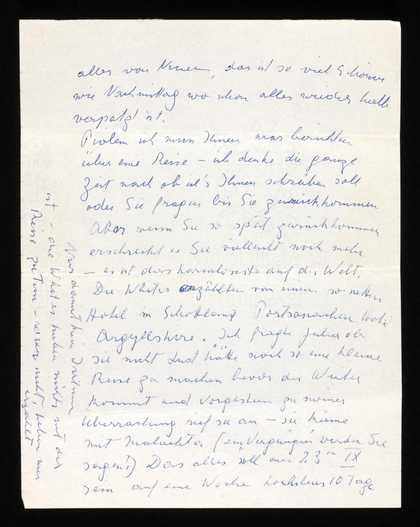 alles von Neuem, das ist so viel schöner
wie Nachmittag wo schon alles wieder halb
verpatzt ist.
ich muss Ihnen was berichten
über eine Reise – ich denke die ganze
Zeit nach ob ich's Ihnen schreiben soll
oder Sie fragen bis Sie zurückkommen
Aber wenn Sie so spät zurückkommen
erschreckt es Sie vielleicht noch mehr
– es ist das harmloseste auf der Welt,
Die Whites erzählten von einem so netten
Hotel in Schottland Hotel
Argyllshire. Ich fragte Julia ob
sie nicht Lust hätte noch so eine kleine
Reise zu machen bevor der Winter
kommt und vorgestern zu meiner
Überraschung rief sie an – sie käme
mit (ein Vergnügen werden Sie
sagen!) Das alles soll am 23ten IX
sein auf eine Woche höchstens 10 Tage
Nur damit kein Irrtum
ist – die Whites haben nichts mit der
Reise zu tun – nicht, haben nur
erzählt